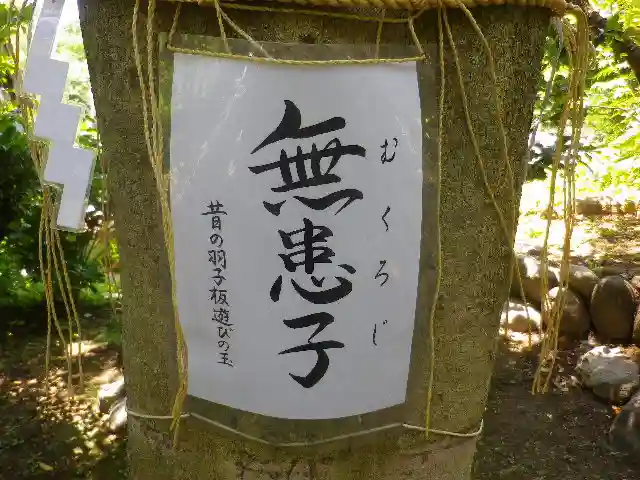 むくろじ
無患子
昔の羽子板遊びの玉